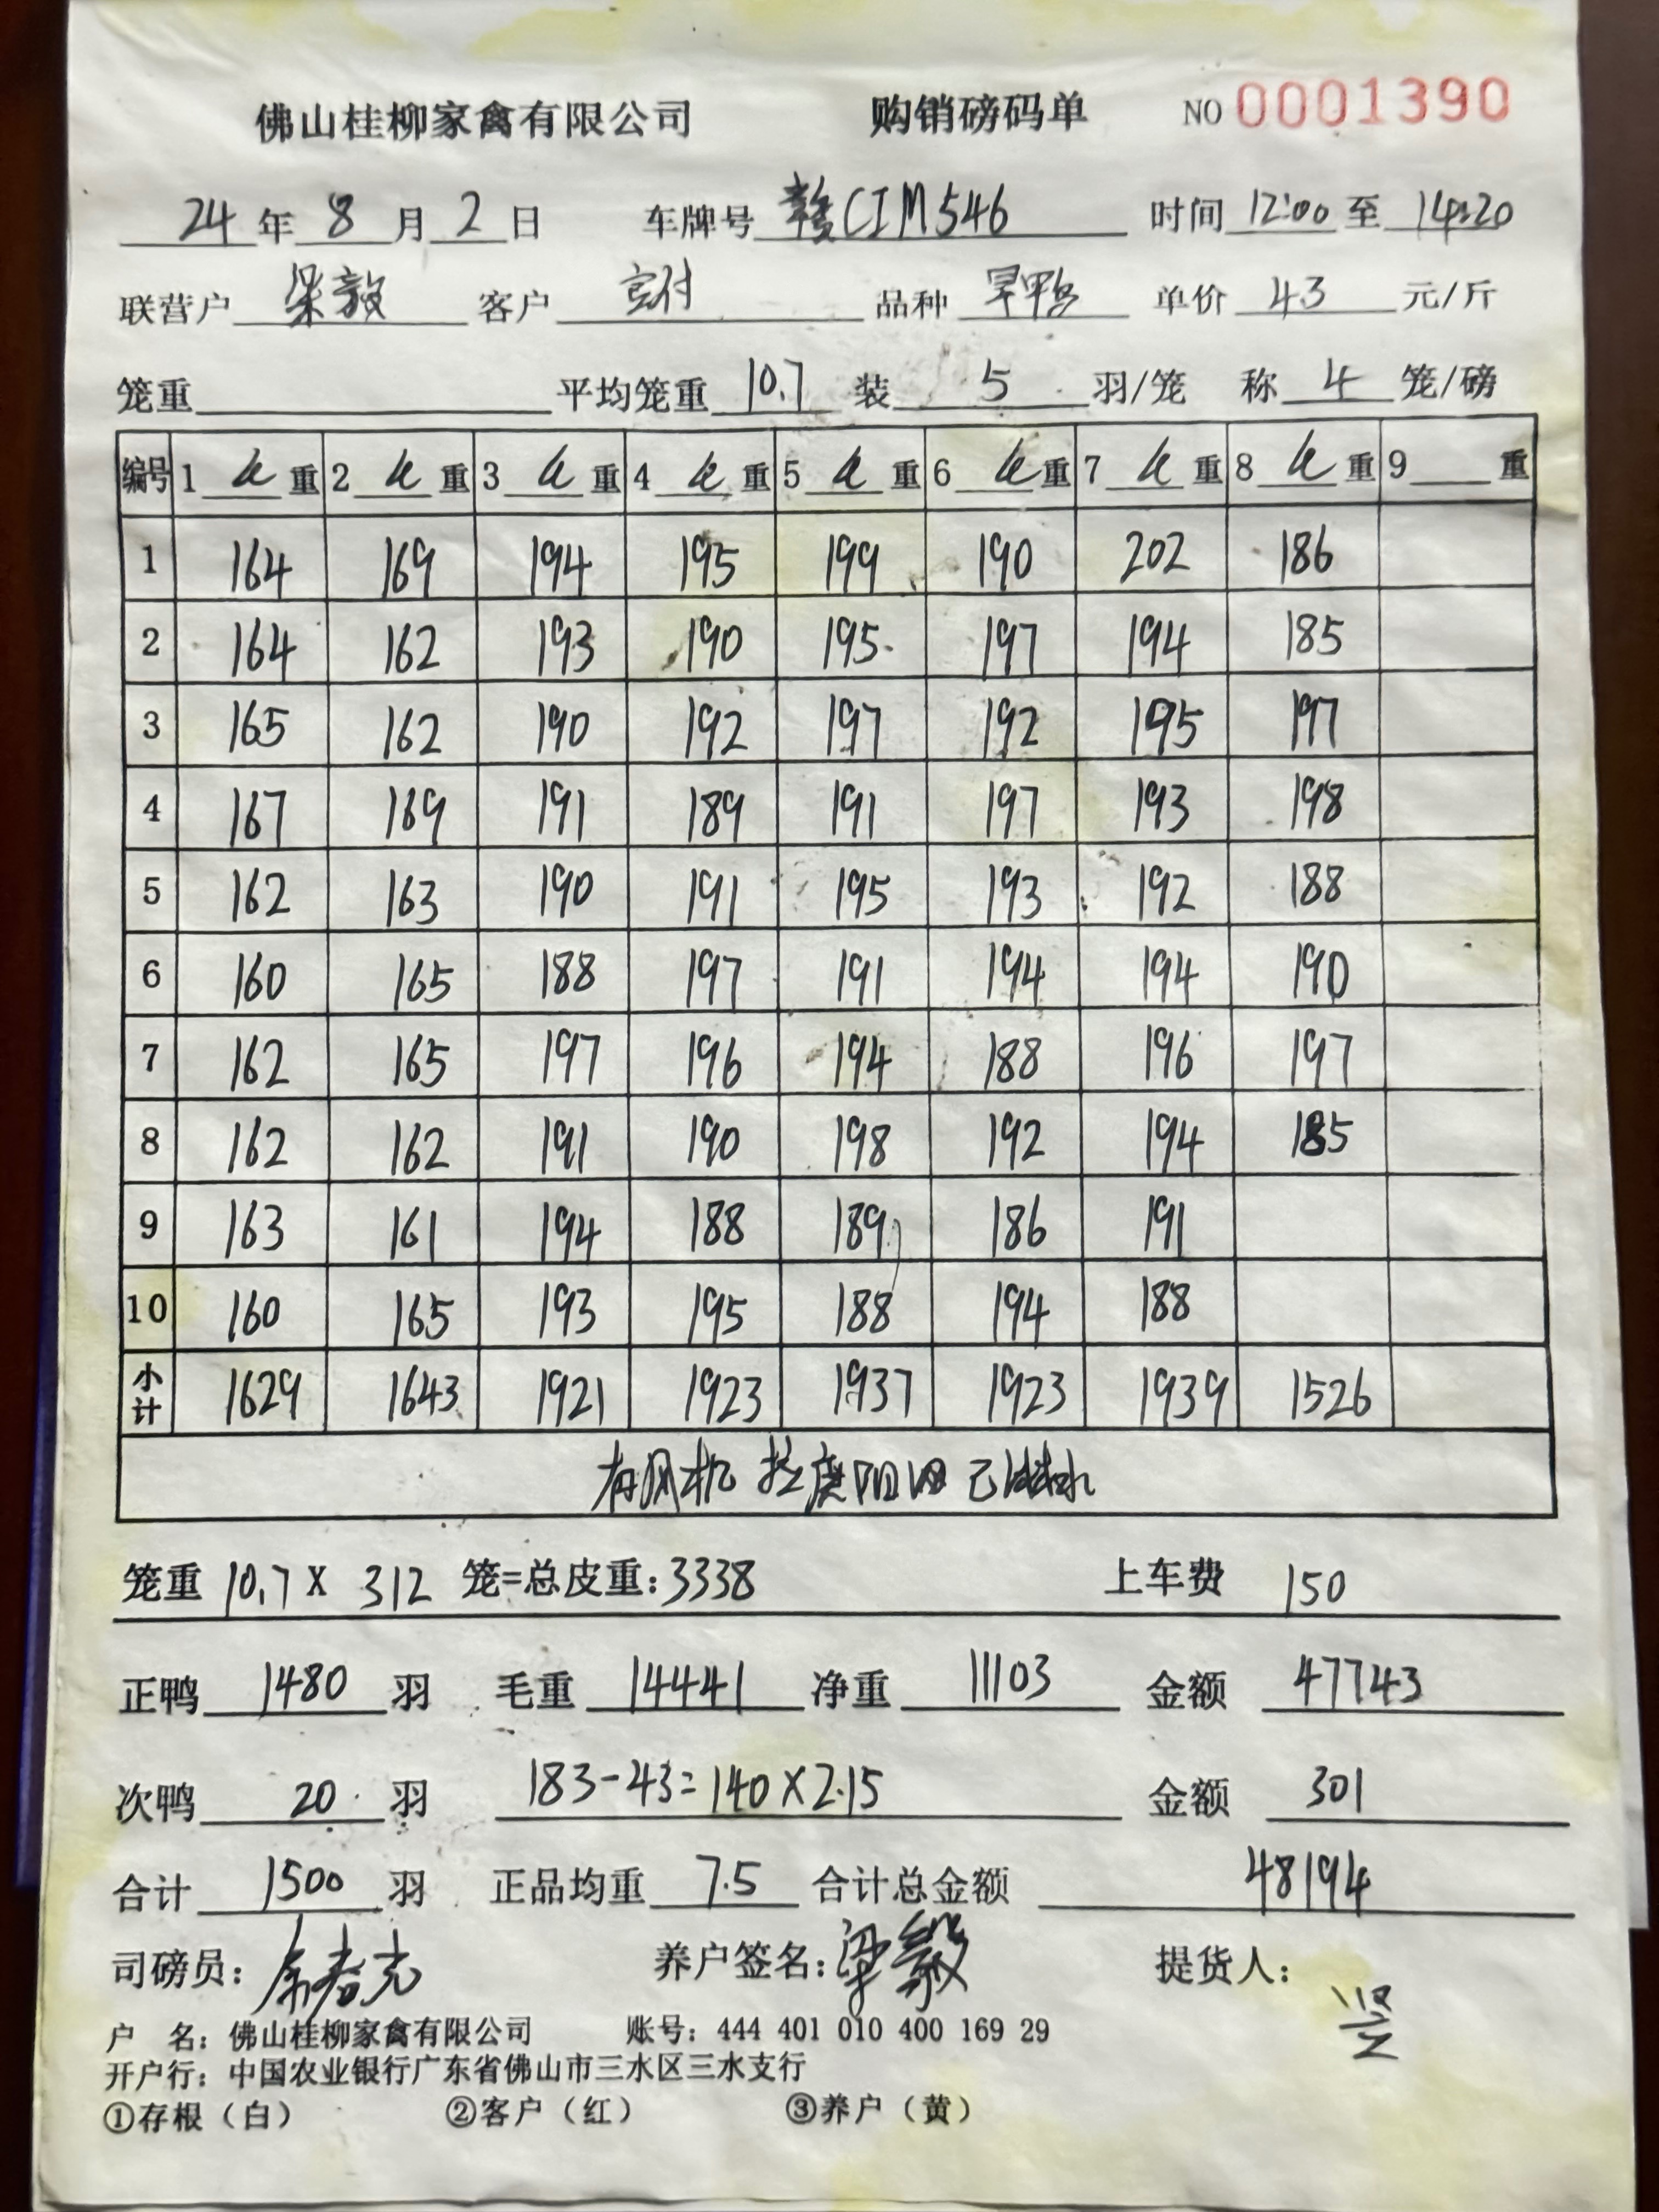 佛山桂柳家禽有限公司 购销磅码单 NO 0001390
24 年 8 月 2 日 车牌号 赣CIM546 时间 12:00 至 14:20
联营户 梁毅 客户 客户 品种 旱鸭 单价 4.3 元/斤
笼重 平均笼重 10.7 装 5 羽/笼 称 4 笼/磅
编号 1 重 2 重 3 重 4 重 5 重 6 重 7 重 8 重 9 重
1 164 169 194 195 199 190 202 186
2 164 162 193 190 195 197 194 185
3 165 162 190 192 197 192 195 197
4 167 169 191 189 191 197 193 198
5 162 163 190 191 195 193 192 188
6 160 165 188 197 191 194 194 190
7 162 165 197 196 194 188 196 197
8 162 162 191 190 198 192 194 185
9 163 161 194 188 189 186 191
10 160 165 193 195 188 194 188
小计 1629 1643 1921 1923 1937 1923 1939 1526
有风机
笼重 10.7 X 312 笼=总皮重: 3338 上车费 150
正鸭 1480 羽 毛重 14441 净重 11103 金额 47743
次鸭 20 羽 183-43=140×2.15 金额 301
合计 1500 羽 正品均重 7.5 合计总金额 48194
司磅员: 养户签名: 梁毅 提货人:
户 名: 佛山桂柳家禽有限公司 账号: 444 401 010 400 169 29
开户行: 中国农业银行广东省佛山市三水区三水支行
①存根（白） ②客户（红） ③养户（黄）